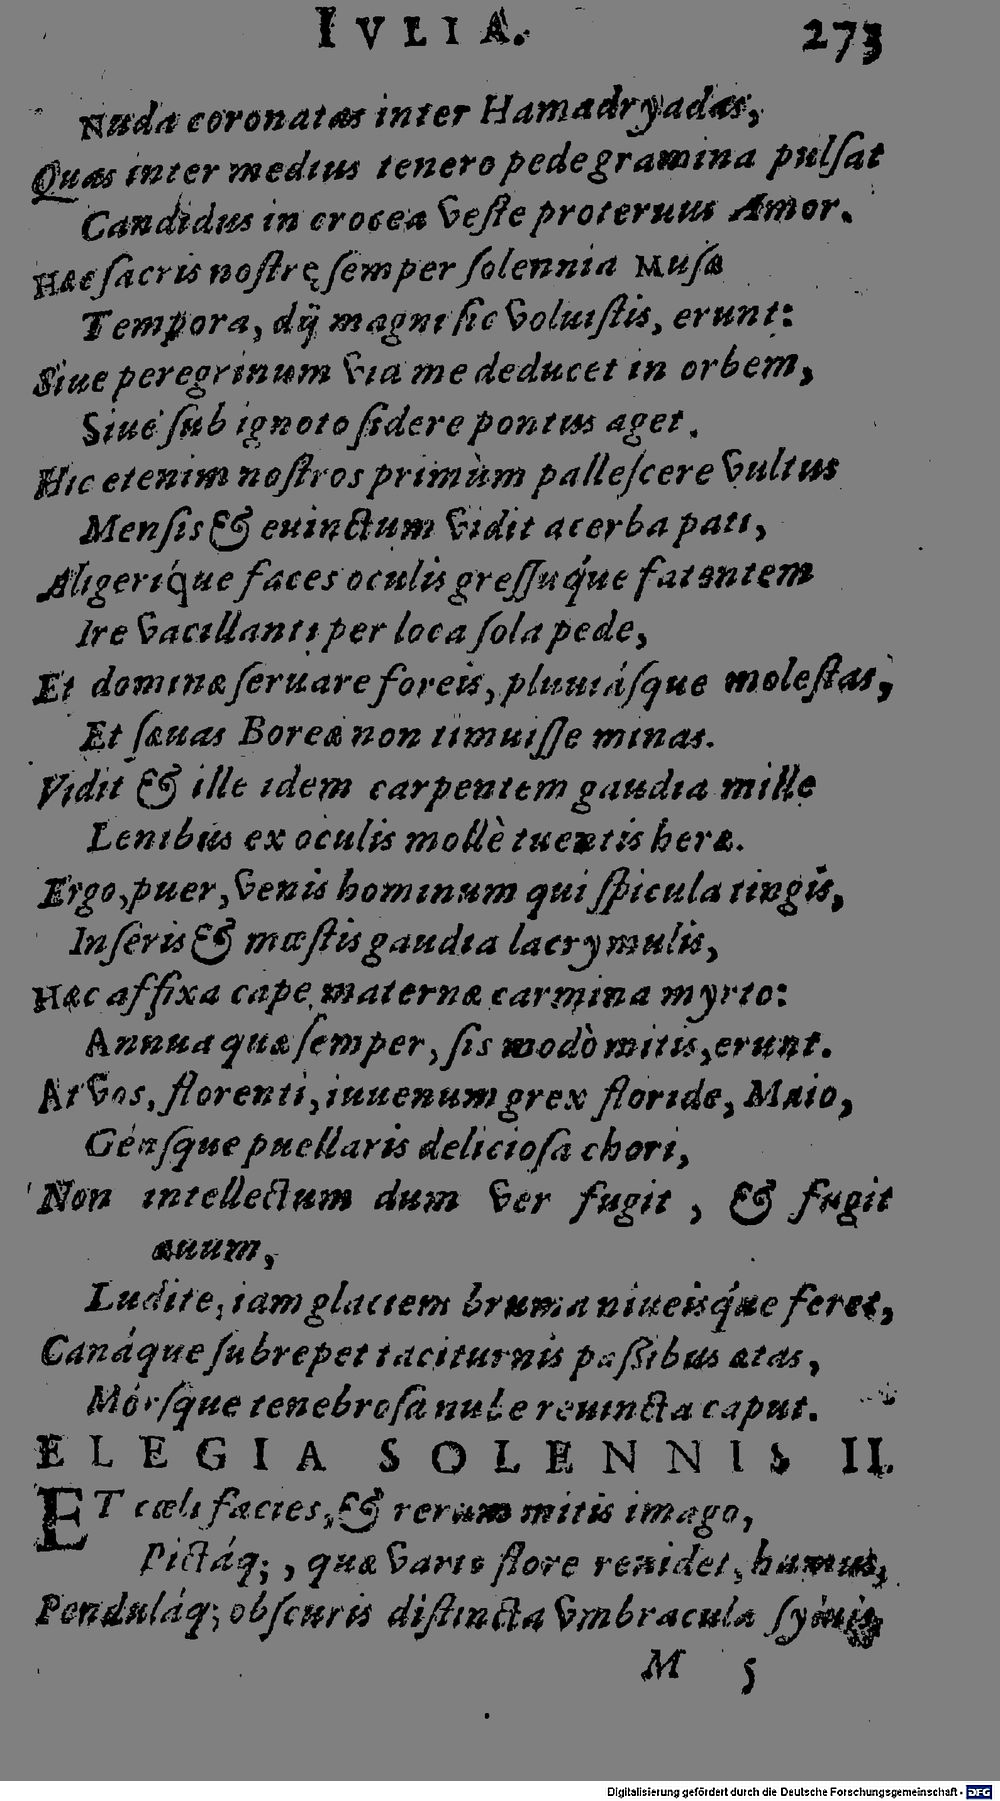 IVLIA. 273
Nuda coronatas inter Hamadryadas,
Quas inter medius tenero pede gramina pulſat
Candidus in crocea veſte proteruus Amor.
Hæc ſacris noſtrę ſemper ſolennia Muſæ
Tempora, dij magni ſic voluiſtis, erunt:
Siue peregrinum via me deducet in orbem,
Siue ſub ignoto ſidere pontus aget.
Hic etenim noſtros primùm palleſcere vultus
Menſis & euinctum vidit acerba pati,
Aligeriq́ue faces oculis greſſuq́ue fatentem
Ire vacillanti per loca ſola pede,
Et dominæ ſeruare foreis, pluuiáſque moleſtas,
Et ſæuas Boreæ non timuiſſe minas.
Vidit & ille idem carpentem gaudia mille
Lenibus ex oculis mollè tuentis heræ.
Ergo, puer, venis hominum qui ſpicula tingis,
Inſeris & mœſtis gaudia lacrymulis,
Hæc affixa cape maternæ carmina myrto:
Annua quæ ſemper, ſis modò mitis, erunt.
At vos, florenti, iuuenum grex floride, Maio,
Génſque puellaris delicioſa chori,
Non intellectum dum ver fugit, & fugit
æuum,
Ludite, iam glaciem bruma niueisq́ue feret,
Canáque ſubrepet taciturnis paſſibus ætas,
Mórſque tenebroſa nube reuincta caput.
ELEGIA SOLENNIS II.
ET cæli facies, & rerum mitis imago,
Pictáq;, quæ vario flore renidet, humus,
Penduláq; obſcuris diſtincta vmbracula ſyluis,
M 5
Digitalisierung gefördert durch die Deutsche Forschungsgemeinschaft - DFG